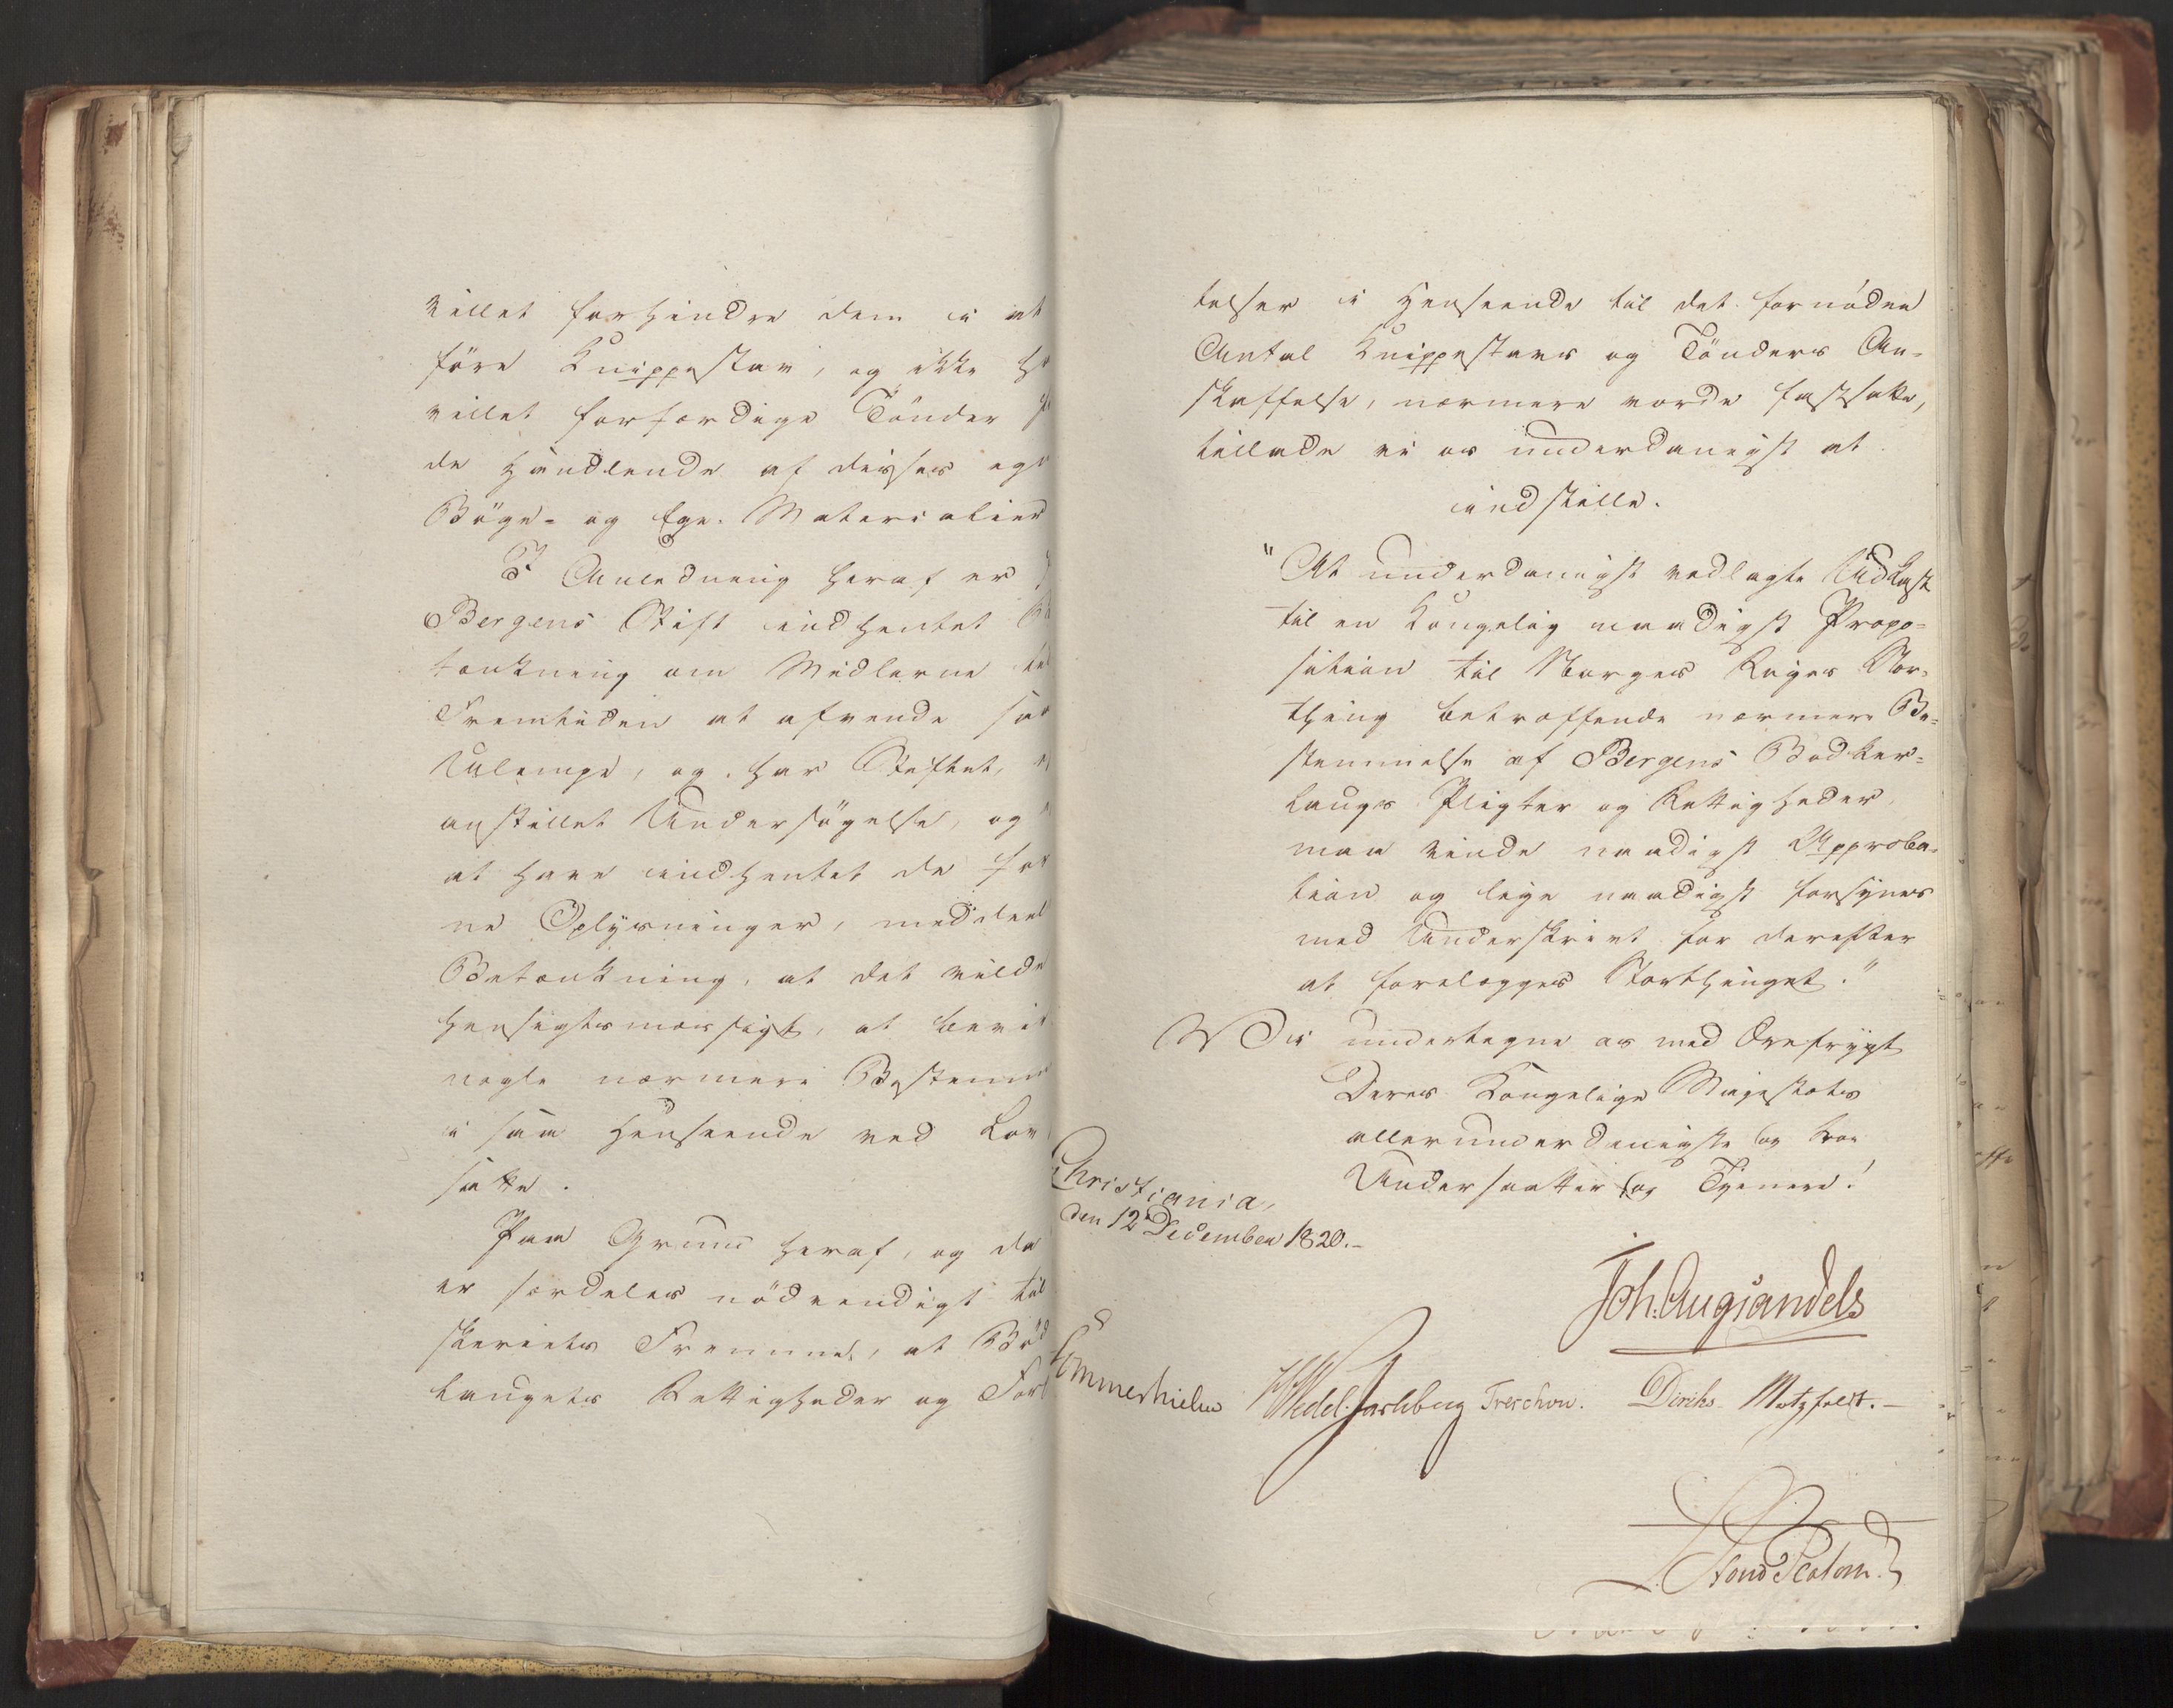 villet forhindre dem i at
före Knippestav, og ikke
villet forfærdige Tönder
de Handlende af disses eg
Böge- og Ege-Materialier
I Anledning heraf er
Bergens Stift indhentet
tænkning om Midlerne til
Fremtiden at afvende saa
Ulempe, og har Stiftet,
anstillet Undersögelse, og
at have indhentet de for
ne Oplysninger, meddeel
Betænkning, at det vilde
hensigtsmæssigt, at bevi
nogle nærmere Bestemm
i saa Henseende ved Lov
satte.
Paa Grund heraf, og da
er særdeles nödvendigt til
skeriets Fremme, at Böd
laugets Rettigheder og For
telser i Henseende til det fornödne
Antal Knippestavs og Tönders An-
skaffelse, nærmere vorde fastsatte,
tillade vi os underdanigst at
indstille.
"At underdanigst vedlagte Udkast
til en Kongelig naadigst Propo-
sition til Norges Riges Stor-
thing betræffende nærmere Be-
stemmelse af Bergens Bødker-
laugs Pligter og Rettigheder,
maa vinde naadigst Approba-
tion og lige naadigst forsynes
med Underskrivt for derefter
at forelægges Storthinget."
Vi undertegne os med Ærefrygt
Deres Kongelige Majestæts
allerunderdanigste og troe
Undersaatter og Tjenere!
Christiania,
den 12 December 1820.-
Joh. Aug Sandels
Sommerhielm Wedel-Jarlsberg Treschow. Diriks Motzfeldt.-